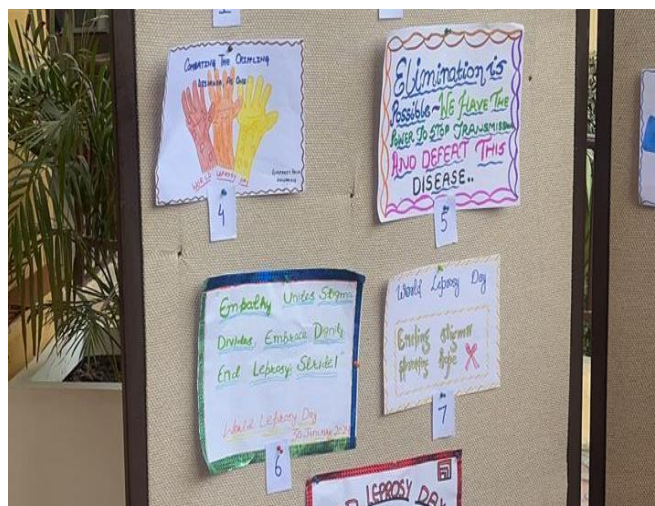 COMBATING THE CRIPLING
DISEASE, AS ONE
WORLD LEPROSY DAY
4
Elimination is
Possible~WE HAVE THE
POWER TO STOP TRANSMISSION
AND DEFEAT THIS
DISEASE..
5
"Empathy Unites Stigma
Divides, Embrace Dignity
End Leprosy's Stride!"
World Leprosy Day
30 January 2024
6
World Leprosy Day
Ending stigma
planting hope
7
LEPROSY DAY